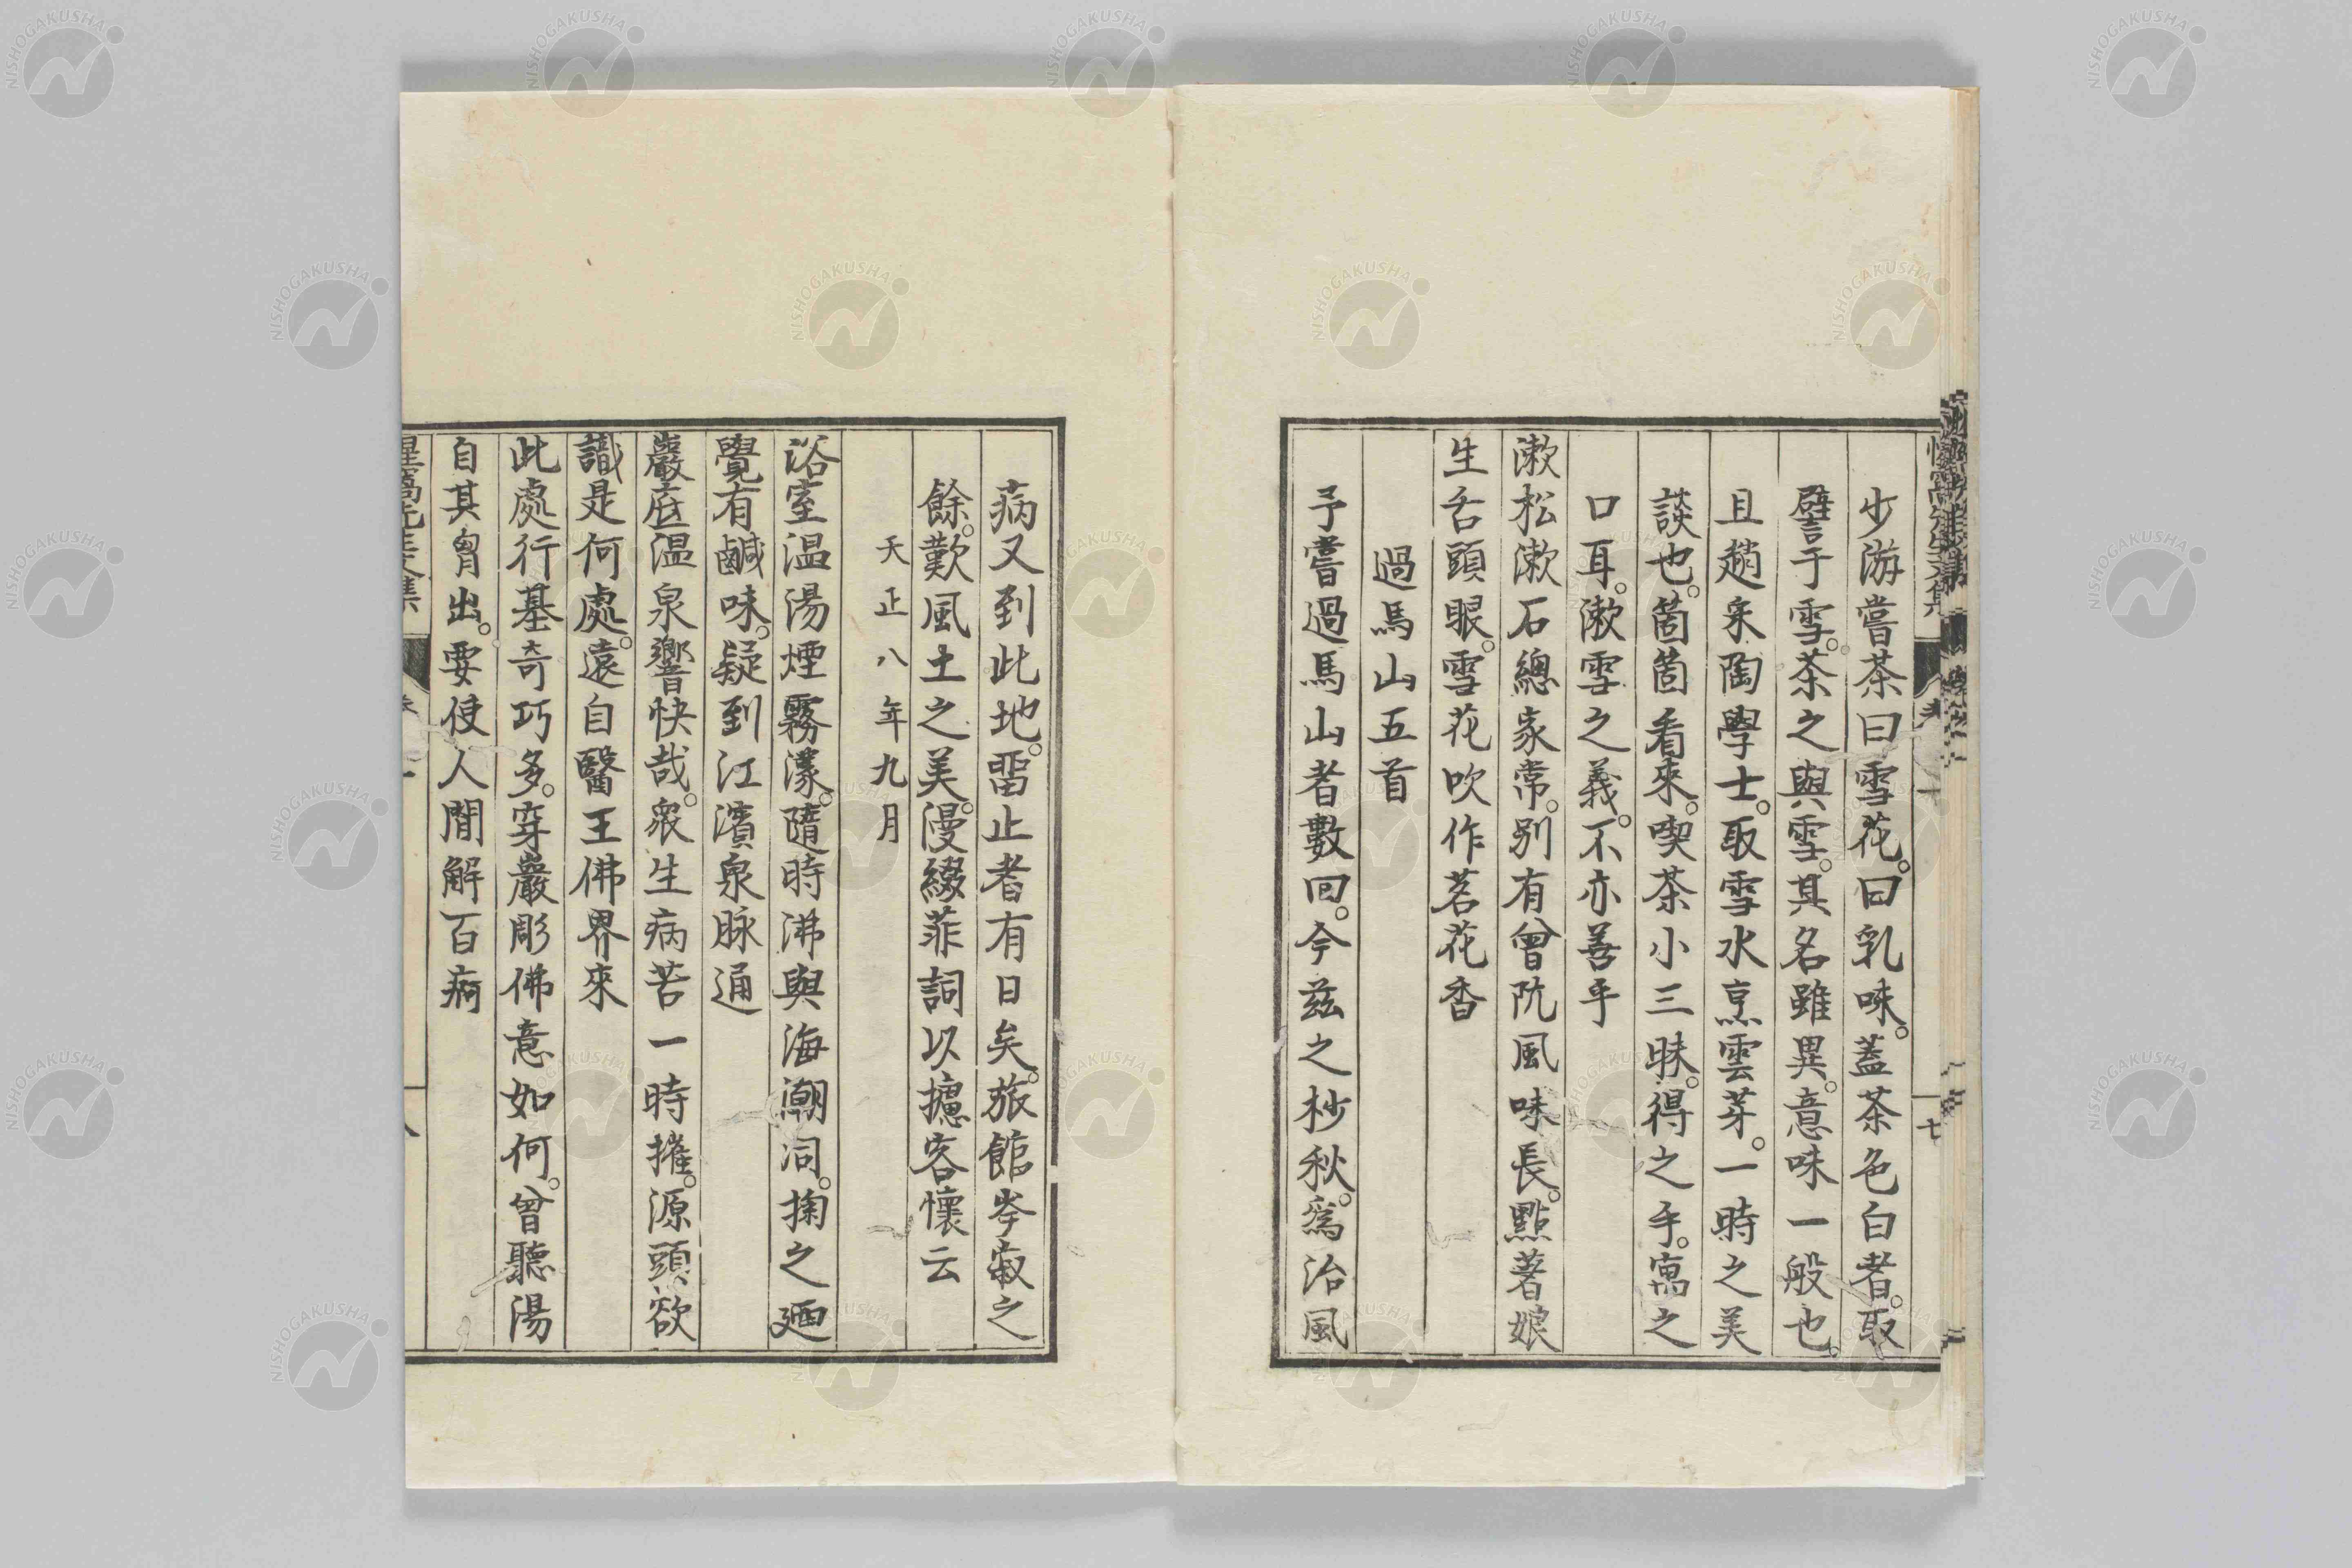 少游嘗茶曰雪花。曰乳味。蓋茶色白者。取
譬于雪。茶之與雪。其名雖異。意味一般也。
且趙宋陶學士。取雪水烹雲芽。一時之美
談也。箇箇看來。喫茶小三昧。得之手。寓之
口耳。漱雪之義。不亦善乎
漱松漱石總家常。別有曾阬風味長。點著娘
生舌頭眼。雪花吹作茗花香
過馬山五首
予嘗過馬山者數回。今茲之杪秋。爲治風
病又到此地。畱止者有日矣。旅館岑寂之
餘。歎風土之美。漫綴菲詞以攄客懷云
天正八年九月
浴室温湯煙霧濛。隨時沸與海潮洞。掬之廼
覺有鹹味。疑到江濱泉脉通
巖庭温泉響快哉。衆生病苦一時摧。源頭欲
識是何處。遠自醫王佛界來
此處行基奇巧多。穿巖彫佛意如何。曾聽湯
自其胷出。要使人間解百痾